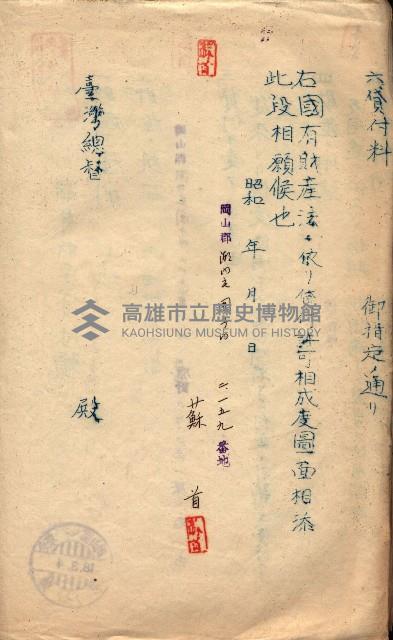 六貸付料 御指定ノ通リ
右國有財産法ニ依リ貸付許可相成度圖面相添
此段相願候也
昭和 年 月 日
岡山郡 二一五九番地
蘇 首
臺灣總督 殿
高雄市立歷史博物館
KAOHSIUNG MUSEUM OF HISTORY